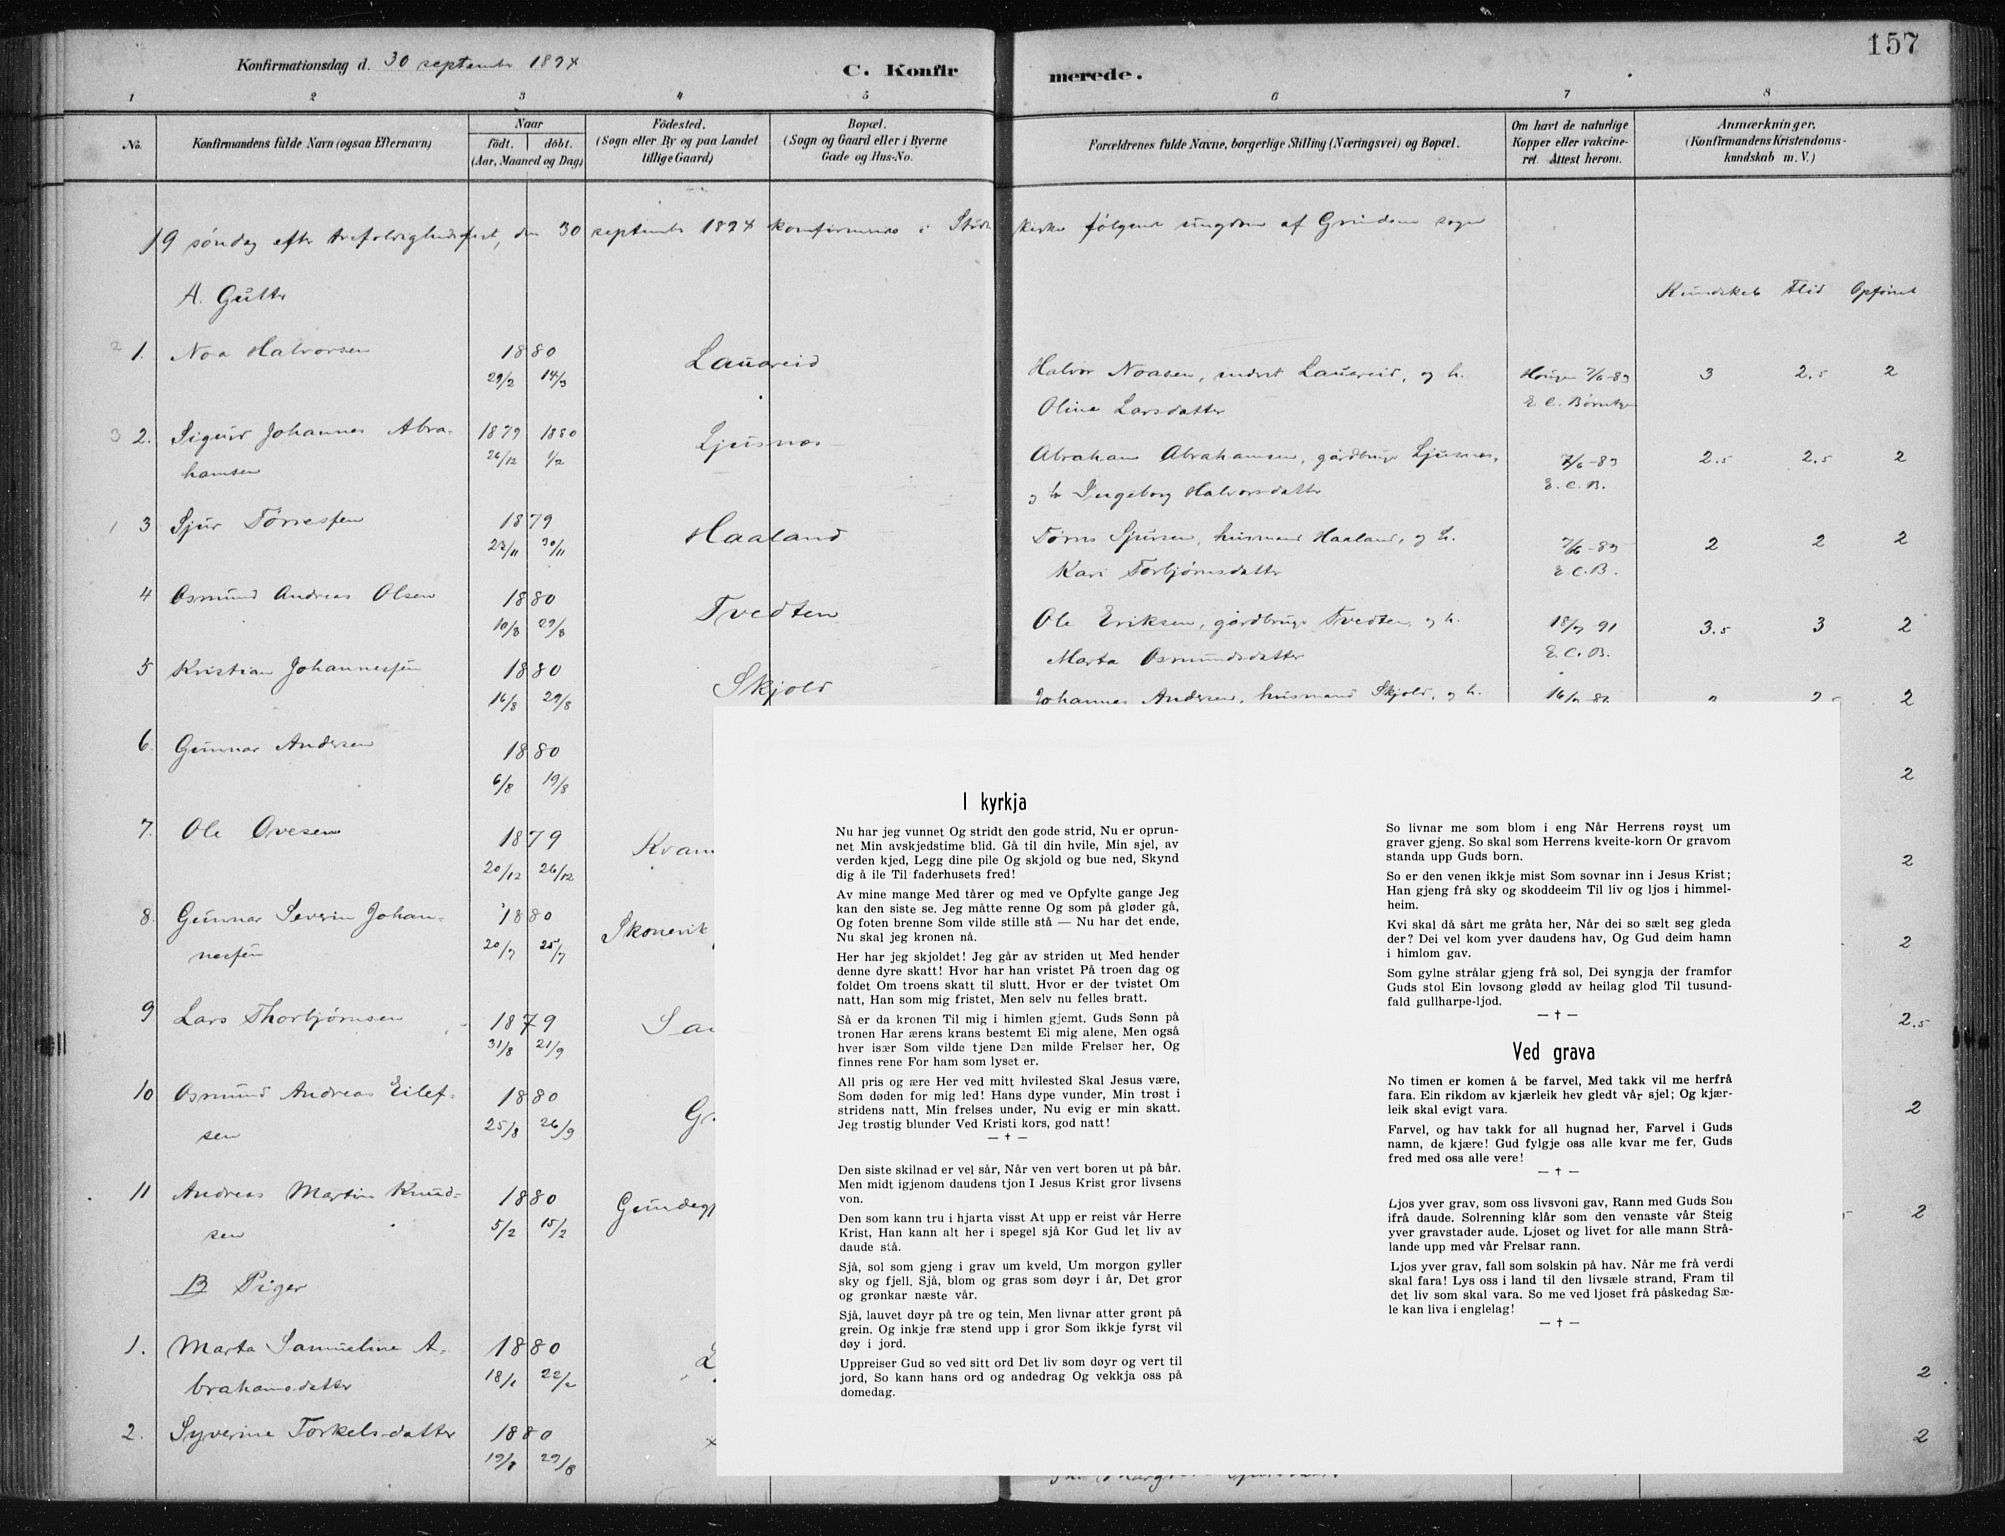 157
Konfirmationsdag d. 30 september 1894
C. Konfir merede.
1 2 3 4 5 6 7 8
No.
Konfirmandens fulde Navn (ogsaa Efternavn)
Naar
födt. döbt.
(Aar, Maaned og Dag)
Födested.
(Sogn eller By og paa Landet
tillige Gaard)
Bopæl.
(Sogn og Gaard eller i Byerne
Gade og Hus-No.
Forældrenes fulde Navne, borgerlige Stilling (Næringsvei) og Bopæl.
Om havt de naturlige
Kopper eller vakcine-
ret. Attest herom.
Anmærkninger.
(Konfirmandens Kristendoms-
kundskab m. V.)
19 søndag efter trefoldighedsfest, den 30 september 1894 konfirmeres i kirke følgende ungdom af Grindem sogn
A. Gutter
Kundskab Flid Opførsel
2 1. Noa Halvorsen 1880 Lauareid
29/2 14/3
Halvor Noasen, inderst Lauareid, og h. 7/6-83 3 2.5 2
Oline Larsdatter
3 2. Sigurd Johannes Abra- 1879 1880 Ljusnes
hamsen 26/12 1/2
Abraham Abrahamsen, gårdbruger Ljusnes, 7/6-83 2.5 2.5 2
og h. Ingeborg Halvorsdatter E. C. B.
1 3 Sjur Tørressen 1879 Haaland
23/11 30/11
Tørres Sjursen, husmand Haaland, og h. 7/6-83 2 2 2
Kari Torbjørnsdatter E. C. B.
4 Osmund Andreas Olsen 1880 Tvedten
10/8 29/8
Ole Eriksen, gårdbruger Tvedten, og h. 18/9 91 3.5 3 2
Marta Osmundsdatter E. C. B.
5 Kristian Johannessen 1880 Skjold
16/8 29/8
Johannes Andersen, husmand Skjold, og h. 2
6. Gunnar Andersen 1880
6/8 19/8 2
7. Ole Ovesen 1879 Kvam
20/12 26/12 2
8. Gunnar Severin Johan- 1880 Skonevik
nessen 20/7 25/7 2
9 Lars Thorbjørnsen 1879
31/8 21/9 2.5
10 Osmund Andreas Eilef- 1880
sen 25/8 26/9 2
11 Andreas Martin Knud- 1880
sen 5/2 15/2 2
B Piger
1. Marta Samueline A- 1880
brahamsdatter 18/1 22/2 2
2. Syverine Torkelsdatter 1880
19/8 29/8 2
I kyrkja
Nu har jeg vunnet Og stridt den gode strid, Nu er oprun-
net Min avskjedstime blid. Gå til din hvile, Min sjel, av
verden kjed, Legg dine pile Og skjold og bue ned, Skynd
dig å ile Til faderhusets fred!
Av mine mange Med tårer og med ve Opfylte gange Jeg
kan den siste se. Jeg måtte renne Og som på gløder gå,
Og foten brenne Som vilde stille stå — Nu har det ende,
Nu skal jeg kronen nå.
Her har jeg skjoldet! Jeg går av striden ut Med hender
denne dyre skatt! Hvor har han vristet På troen dag og
foldet Om troens skatt til slutt. Hvor er der tvistet Om
natt, Han som mig fristet, Men selv nu felles bratt.
Så er da kronen Til mig i himlen gjemt. Guds Sønn på
tronen Har ærens krans bestemt Ei mig alene, Men også
hver især Som vilde tjene Den milde Frelser her, Og
finnes rene For ham som lyset er.
All pris og ære Her ved mitt hvilested Skal Jesus være,
Som døden for mig led! Hans dype vunder, Min trøst i
stridens natt, Min frelses under, Nu evig er min skatt.
Jeg trøstig blunder Ved Kristi kors, god natt!
— † —
Den siste skilnad er vel sår, Når ven vert boren ut på bår.
Men midt igjenom daudens tjon I Jesus Krist gror livsens
von.
Den som kann tru i hjarta visst At upp er reist vår Herre
Krist, Han kann alt her i spegel sjå Kor Gud let liv av
daude stå.
Sjå, sol som gjeng i grav um kveld, Um morgon gyller
sky og fjell. Sjå, blom og gras som døyr i år, Det gror
og grønkar næste vår.
Sjå, lauvet døyr på tre og tein, Men livnar atter grønt på
grein. Og inkje fræ stend upp i gror Som ikkje fyrst vil
døy i jord.
Uppreiser Gud so ved sitt ord Det liv som døyr og vert til
jord, So kann hans ord og andedrag Og vekkja oss på
domedag.
So livnar me som blom i eng Når Herrens røyst um
graver gjeng. So skal som Herrens kveite-korn Or gravom
standa upp Guds born.
So er den venen ikkje mist Som sovnar inn i Jesus Krist;
Han gjeng frå sky og skoddeeim Til liv og ljos i himmel-
heim.
Kvi skal då sårt me gråta her, Når dei so sælt seg gleda
der? Dei vel kom yver daudens hav, Og Gud deim hamn
i himlom gav.
Som gylne strålar gjeng frå sol, Dei syngja der framfor
Guds stol Ein lovsong glødd av heilag glod Til tusund-
fald gullharpe-ljod.
— † —
Ved grava
No timen er komen å be farvel, Med takk vil me herfrå
fara. Ein rikdom av kjærleik hev gledt vår sjel; Og kjær-
leik skal evigt vara.
Farvel, og hav takk for all hugnad her, Farvel i Guds
namn, de kjære! Gud fylgje oss alle kvar me fer, Guds
fred med oss alle vere!
— † —
Ljos yver grav, som oss livsvoni gav, Rann med Guds Son
ifrå daude. Solrenning klår som den venaste vår Steig
yver gravstader aude. Ljoset og livet for alle mann Strå-
lande upp med vår Frelsar rann.
Ljos yver grav, fall som solskin på hav. Når me frå verdi
skal fara! Lys oss i land til den livsæle strand, Fram til
det liv som skal vara. So me ved ljoset frå påskedag Sæ-
le kan liva i englelag!
— † —